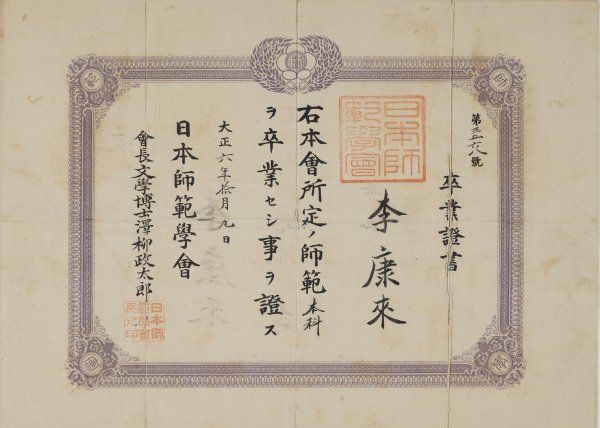 第三五六八號
卒業證書
李康來
日本師範學會
右本會所定ノ師範本科
ヲ卒業セシ事ヲ證ス
大正六年拾月九日
日本師範學會
會長文學博士澤柳政太郎
日本師範學會長之印